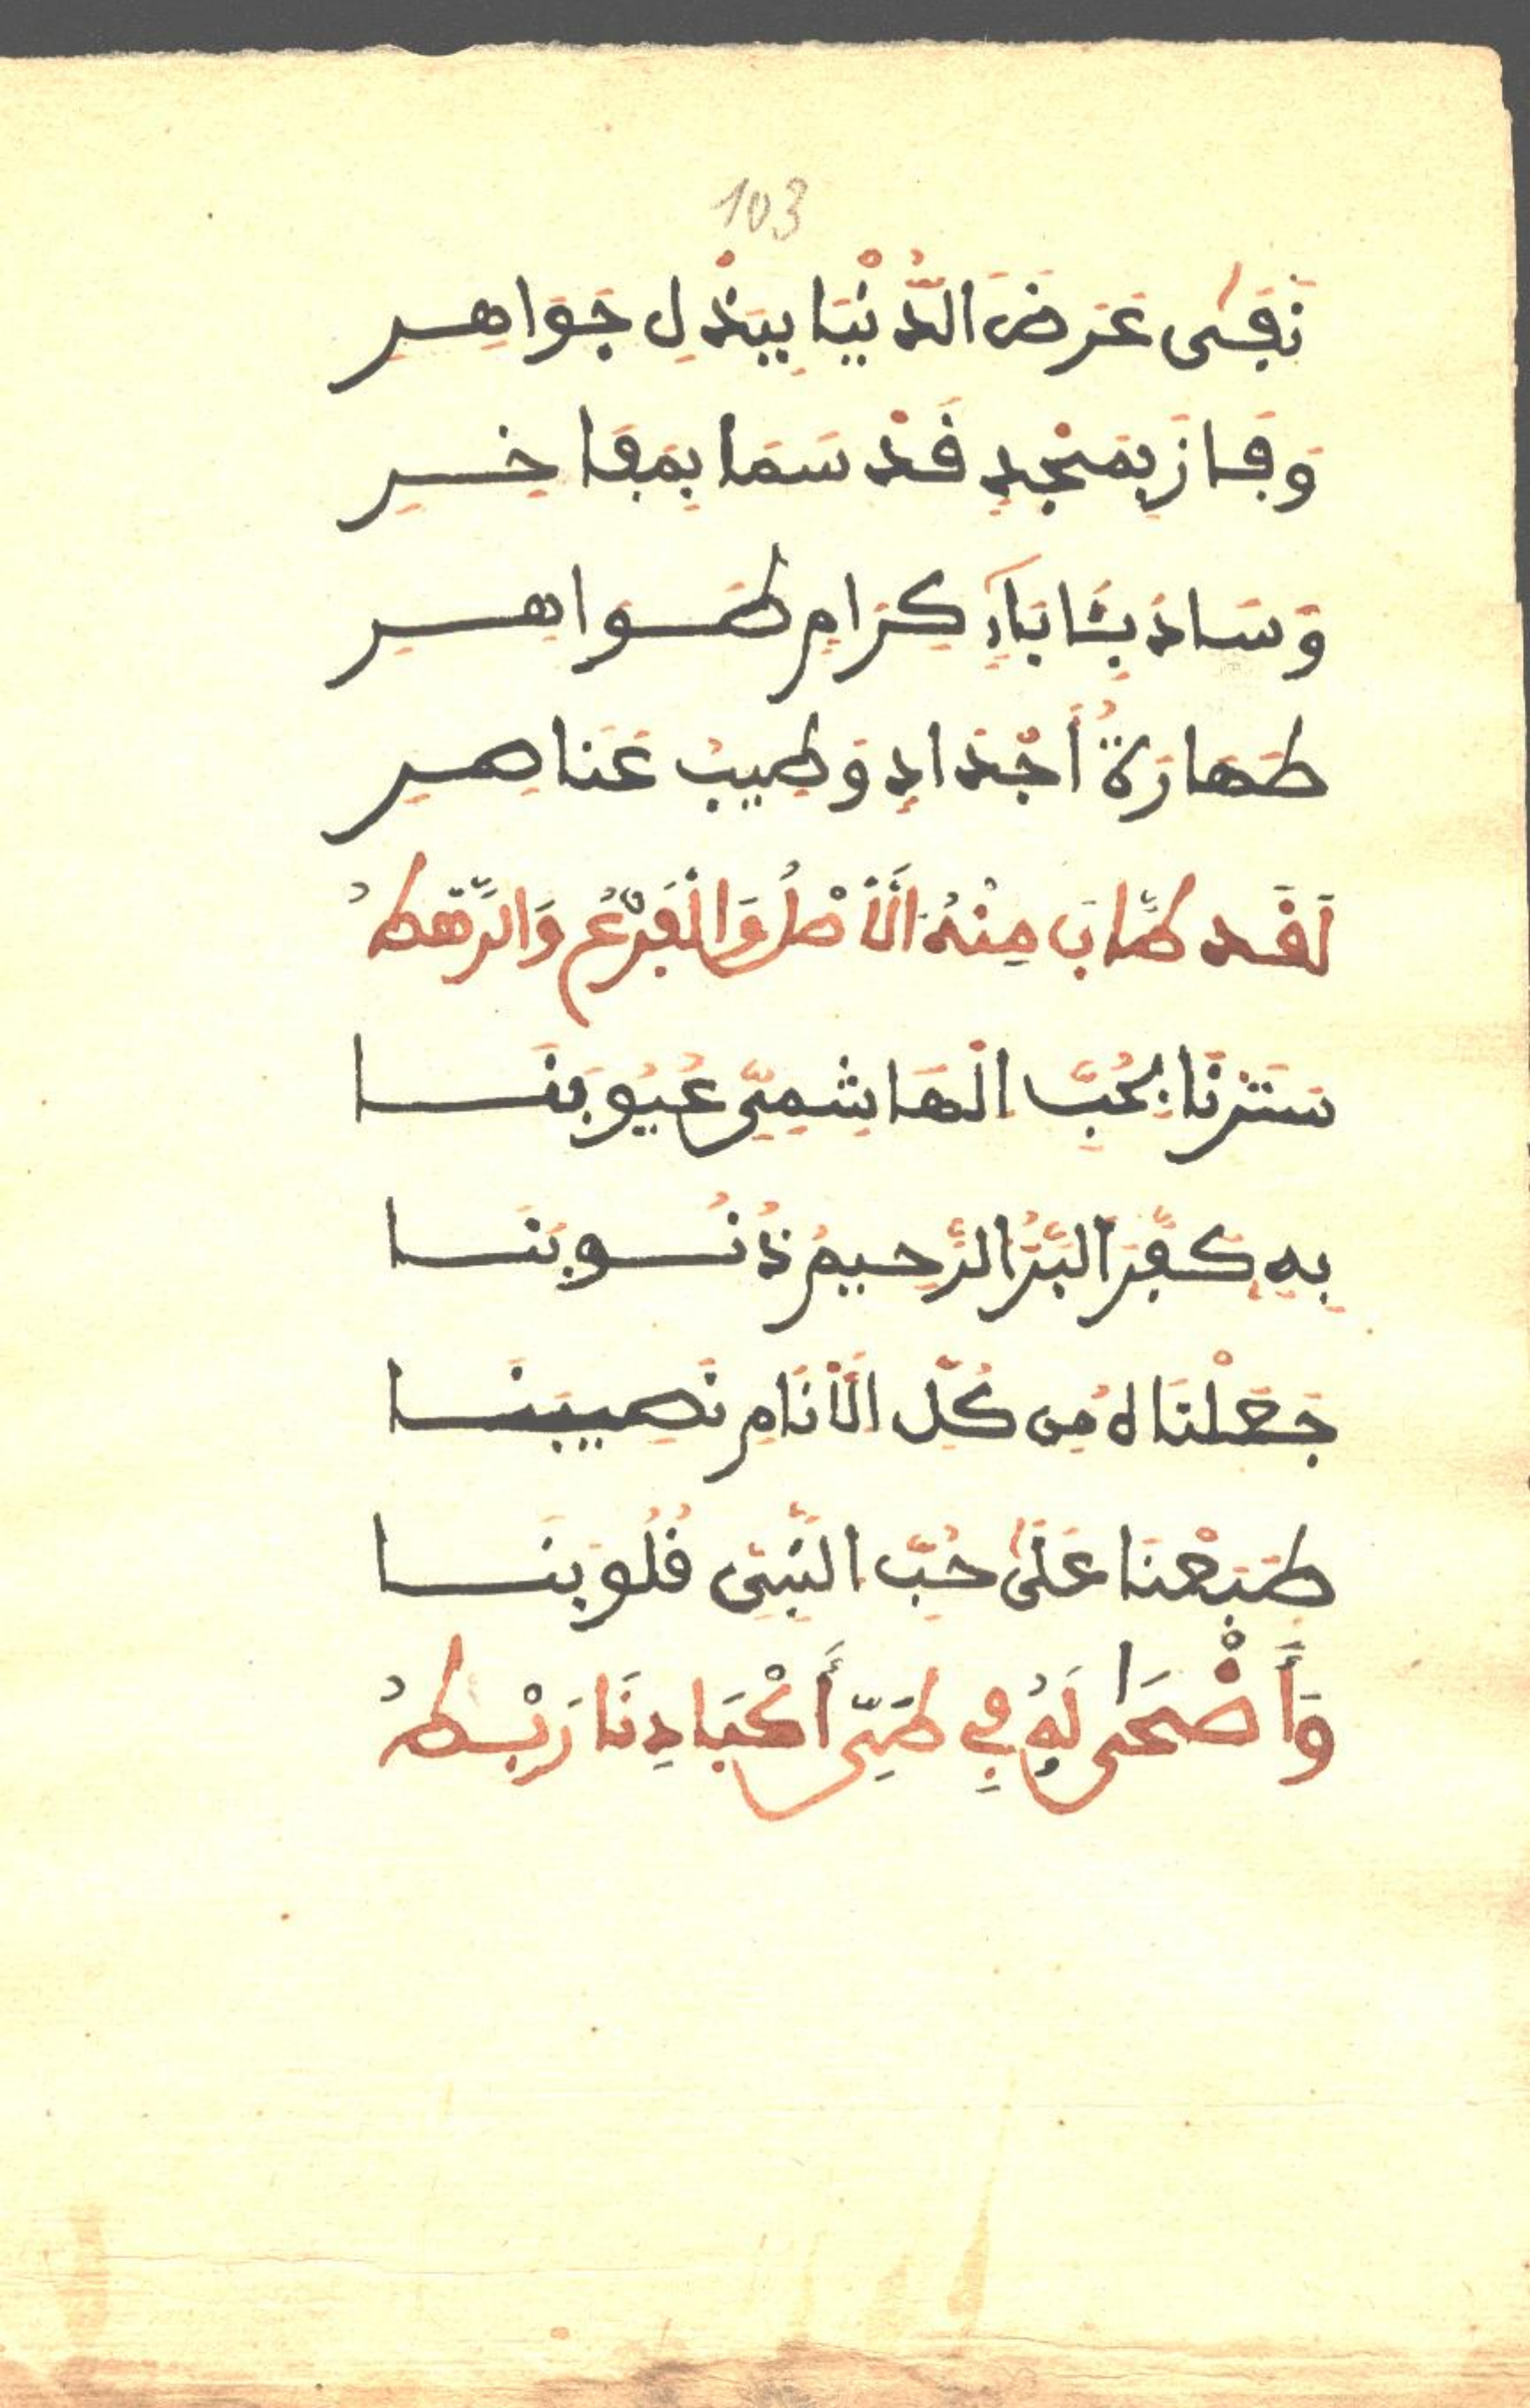 103
نَفَى عَرَضَ الدُّنْيَا بِبَذْلِ جَوَاهِرِ
وَفَازَ بِمَجْدٍ قَدْ سَمَا بِمَفَاخِرِ
وَسَادَ بِـَٔابَآءٍ كِرَامٍ طَوَاهِرِ
طَهَارَةُ أَجْدَادٍ وَطِيبُ عَنَاصِرِ
لَقَد طَّابَ مِنْهُ الْأَصْلُ وَالْفَرْعُ وَالرَّهْطُ
سَتَرْنَا بِحُبِّ الْهَاشِمِيِّ عُيُوبَنَا
بِهِ كَفَّرَ الْبَرُّ الرَّحِيمُ ذُنُوبَنَا
جَعَلْنَا لهُ مِن كُلِّ الْأَنَامِ نَصِيبَنَا
طَبَعْنَا عَلَىٰ حُبِّ النَّبِيِّ قُلُوبَنَا
وَأَضْحَى لَهُ فِي طَيِّ أَكْبَادِنَا رَبْطُ